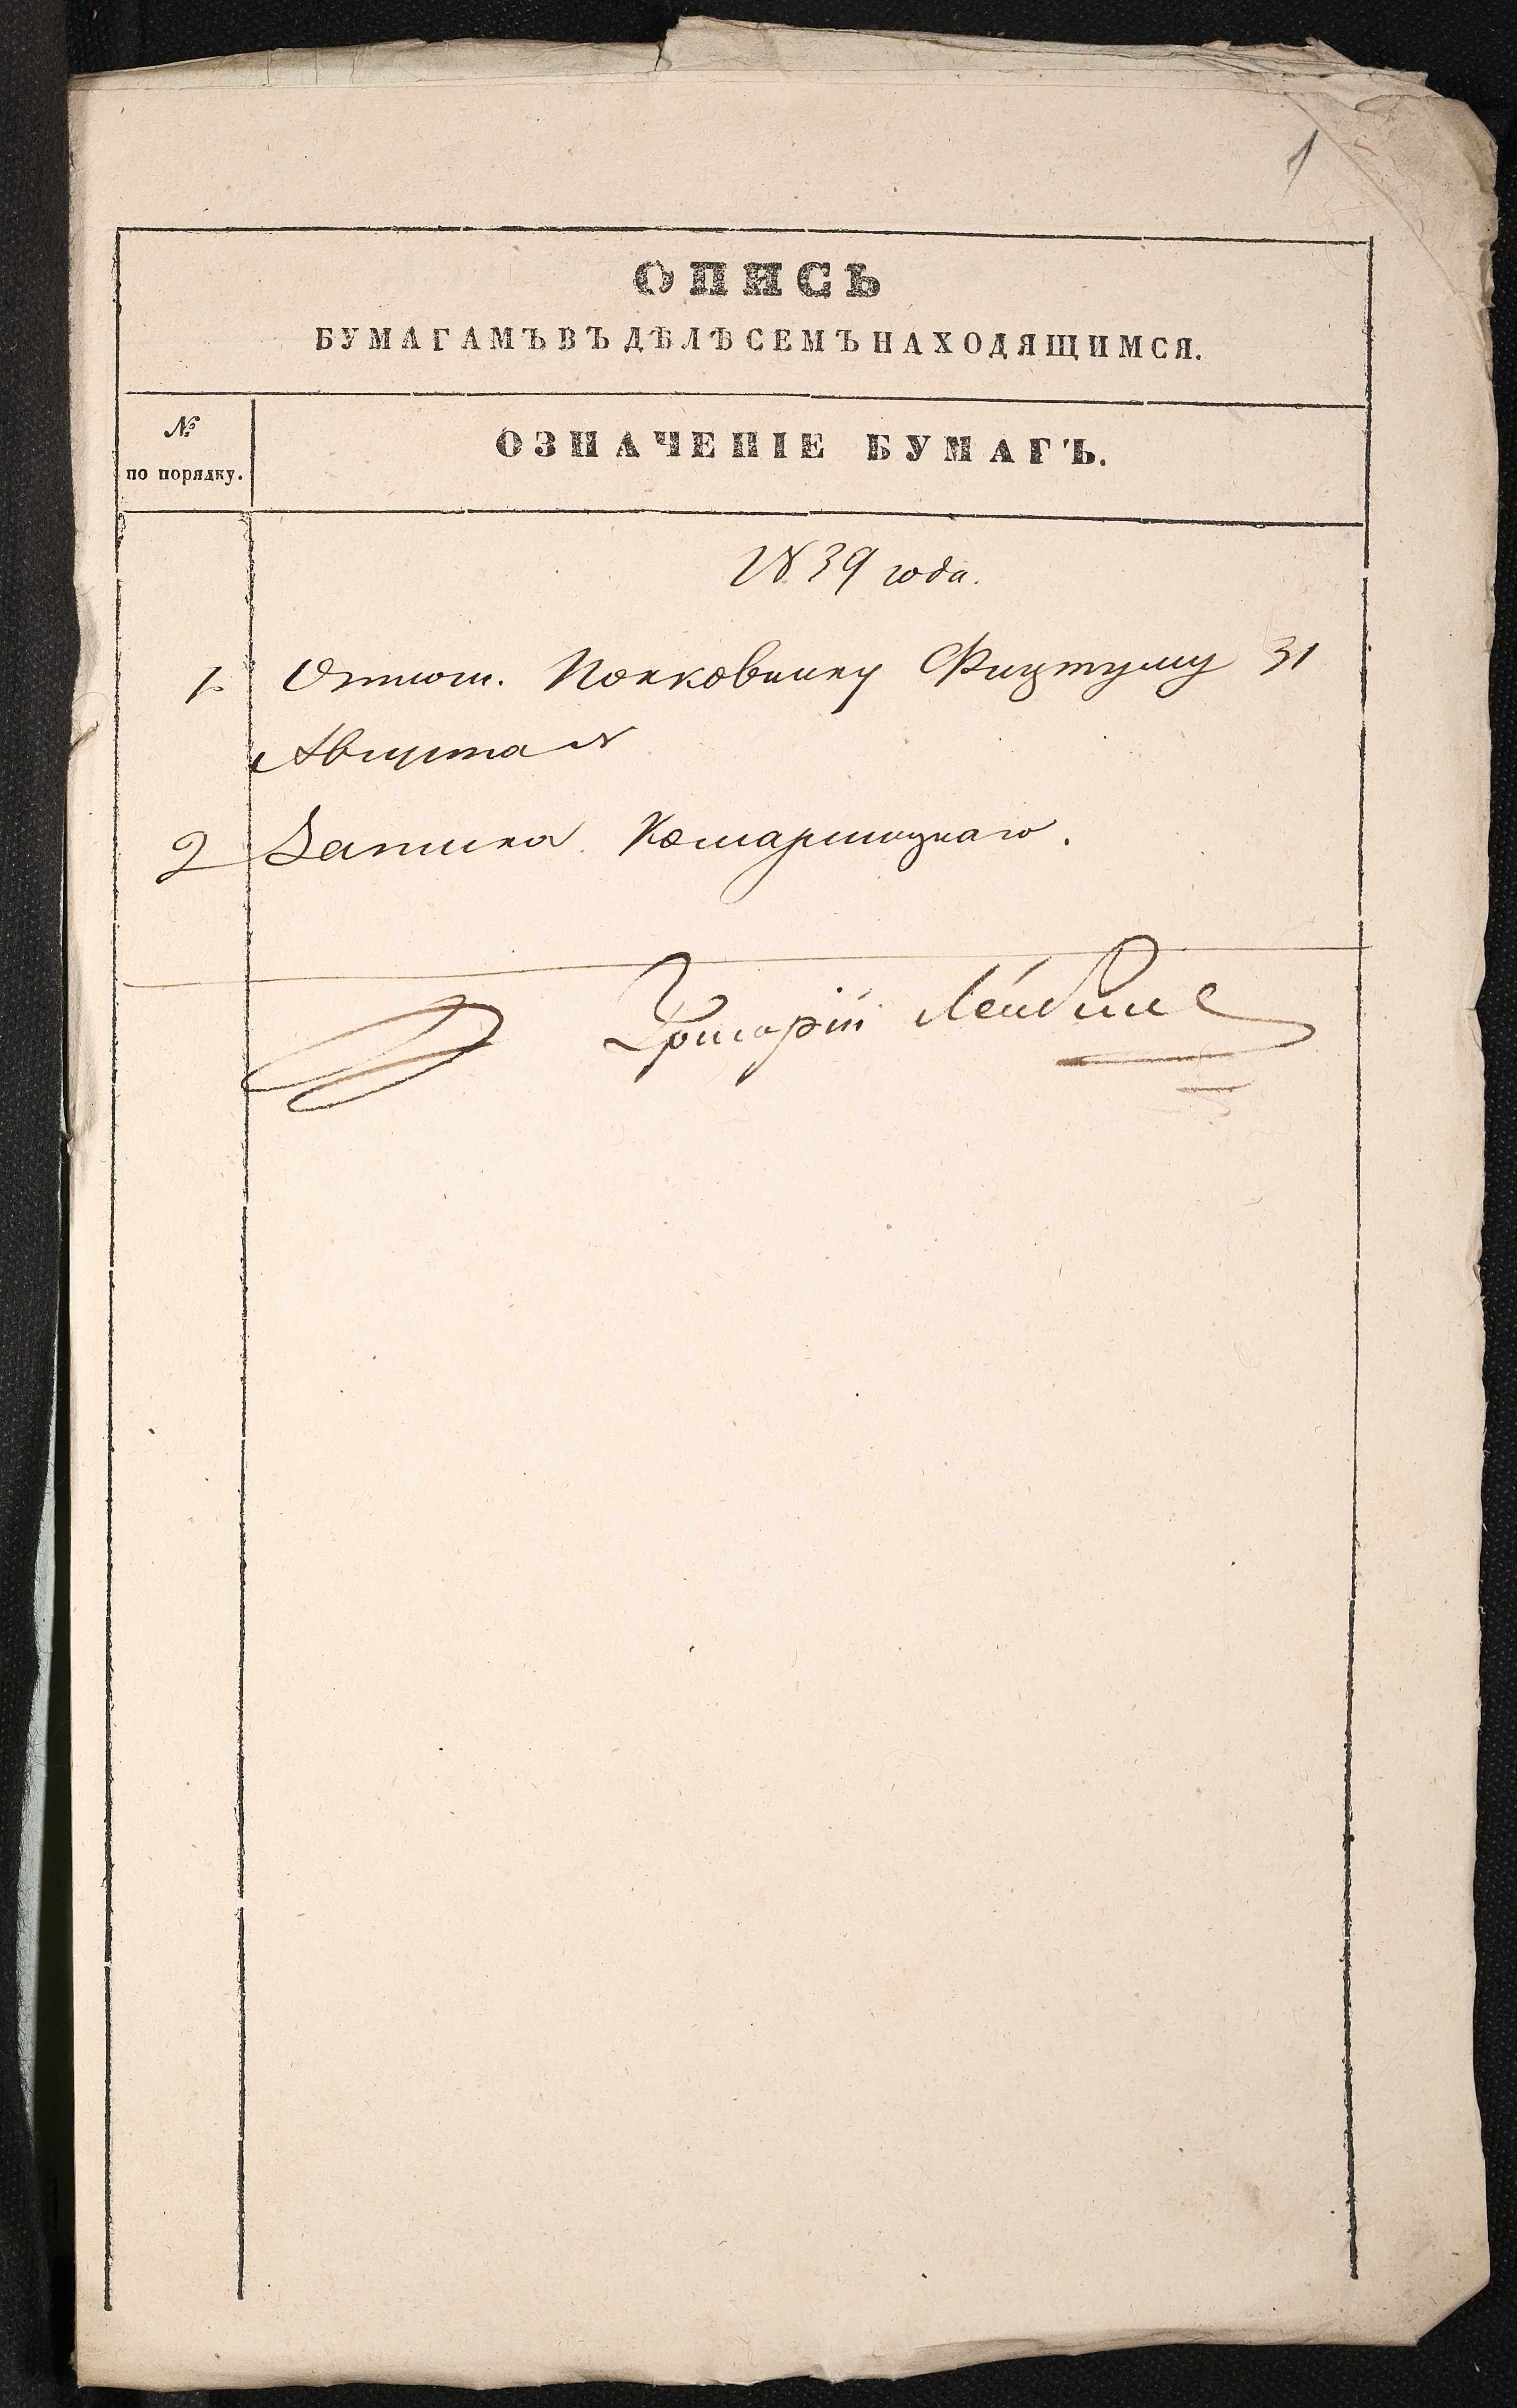 1
ОПИСЬ
БУМАГАМЪ ВЪ ДѢЛѢ СЕМЪ НАХОДЯЩИМСЯ.
№
по порядку.
ОЗНАЧЕНІЕ БУМАГЪ.
1839 года.
1. Отнош. Полковнику Фицтуму 31
Августа
2 Записка Комарницкаго.
Григорій